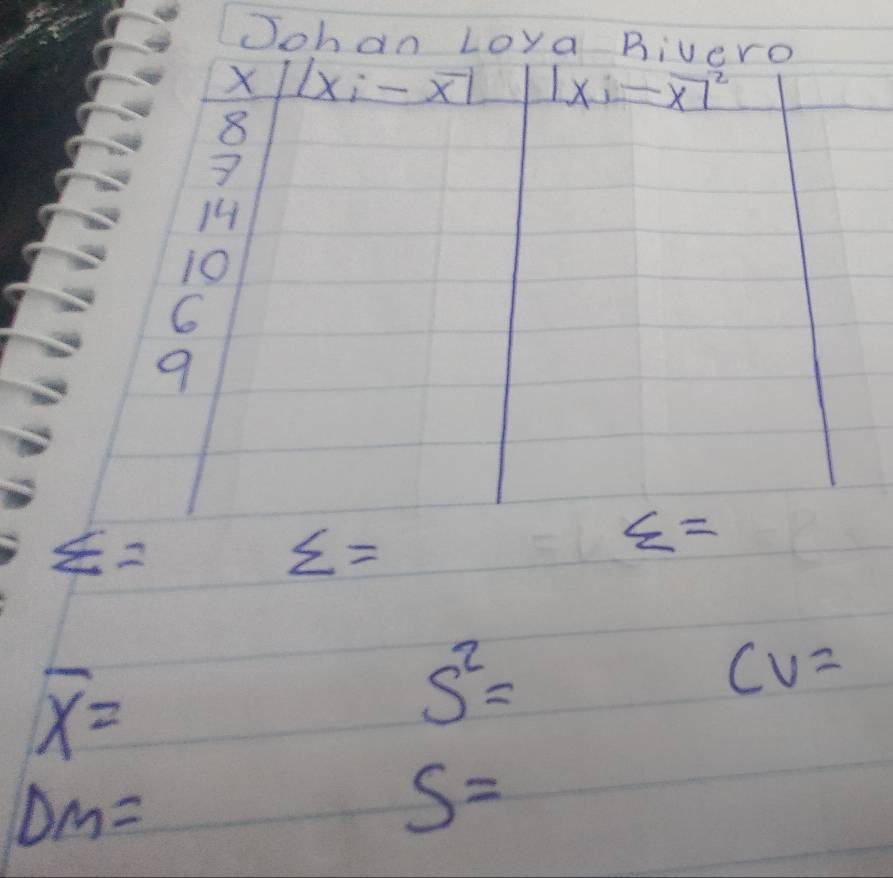 Johan Loya Rivero
x |xi - x̄| |xi - x̄|²
8
7
14
10
6
9
Σ= Σ= Σ=
x̄= S²= CV=
DM= S=